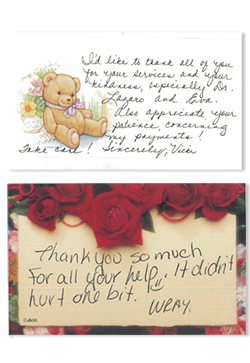 I'd like to thank all of you
for your services and your
kindness, especially Dr.
Lazaro and Eva.
Also appreciate your
patience concerning
my payments!
Take care! Sincerely, Vicki
Thank you so much
For all your help. It didn't
hurt one bit.
WRAY.